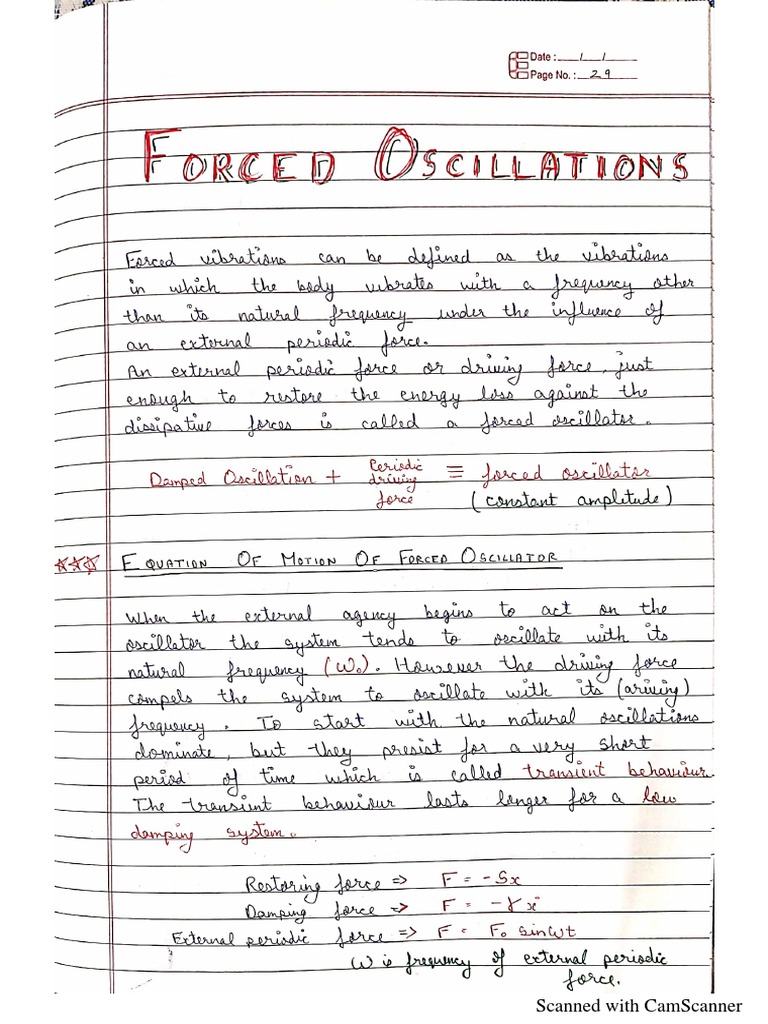 Date : / /
Page No. : 29
FORCED OSCILLATIONS
Forced vibrations can be defined as the vibrations
in which the body vibrates with a frequency other
than its natural frequency under the influence of
an external periodic force.
An external periodic force or driving force, just
enough to restore the energy loss against the
dissipative forces is called a forced oscillator.
Damped Oscillation + Periodic driving force ≡ forced oscillator
(constant amplitude)
EQUATION OF MOTION OF FORCED OSCILLATOR
When the external agency begins to act on the
oscillator the system tends to oscillate with its
natural frequency (ω₀). However the driving force
compels the system to oscillate with its (driving)
frequency. To start with the natural oscillations
dominate, but they presist for a very short
period of time which is called transient behaviour.
The transient behaviour lasts longer for a low
damping system.
Restoring force => F = -Sx
Damping force => F = -γẋ
External periodic force => F = F₀ sinωt
ω is frequency of external periodic
force.
Scanned with CamScanner